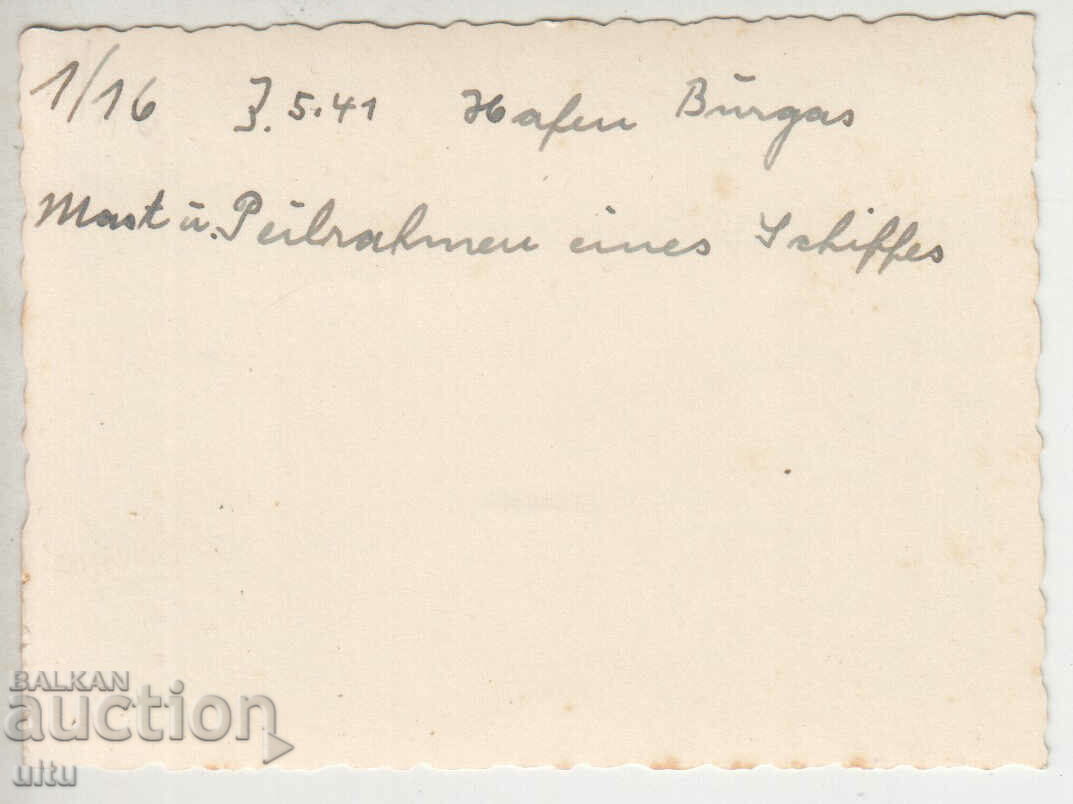 1/16 3.5.41 Hafen Burgas
Mast u. Peilrahmen eines Schiffes
BALKAN
auction
uitu